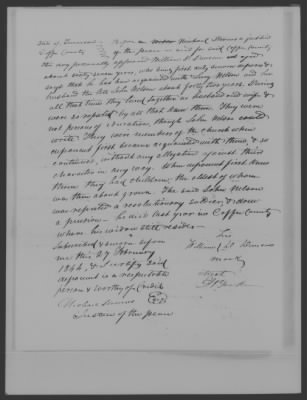 State of Tennessee } Before me Michael Stevens a justice
Coffee County } of the peace in and for said Coffee County
this day personally appeared William S. aged
about sixty seven years, who being first duly sworn deposes &
says that he has been acquainted with Lucy Nelson and her
husband the late John Nelson about forty two years. During
all that time they lived together as husband and wife &
were so reputed by all that knew them. They were
not persons of education, though John Nelson could
write. They were members of the church when
deponent first became acquainted with them, & so
continued, without any allegation against their
character in any way. When deponent first knew
them they had children, the eldest of whom
was then about grown. The said John Nelson
was reputed a revolutionary soldier, & drew
a pension — he died last year in Coffee County
where his widow still resides
Subscribed & sworn before
me this 27 February
1844, & I certify said
deponent is a respectable
person & worthy of credit
Michael Stevens
Justice of the peace
his
William S.
mark
Attest